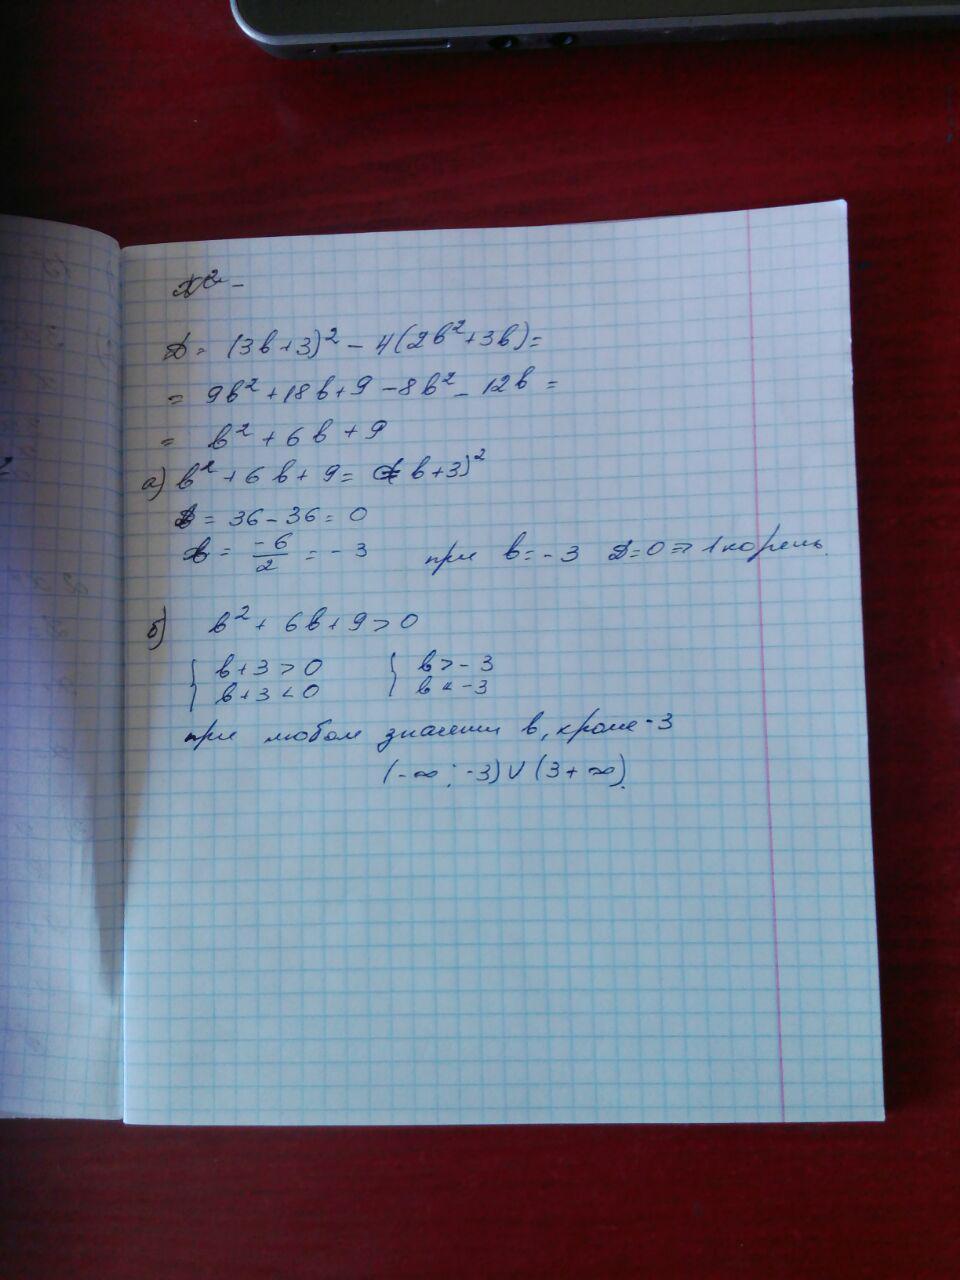 x² -
D = (3b+3)² - 4(2b²+3b) =
= 9b² + 18b + 9 - 8b² - 12b =
= b² + 6b + 9
а) b² + 6b + 9 = (b+3)²
D = 36 - 36 = 0
b = -6/2 = -3 при b = -3 D=0 => 1 корень.
б) b² + 6b + 9 > 0
{ b+3 > 0 { b > -3
{ b+3 < 0 { b < -3
при любом значении b, кроме -3
(-∞; -3) ∪ (3+∞).